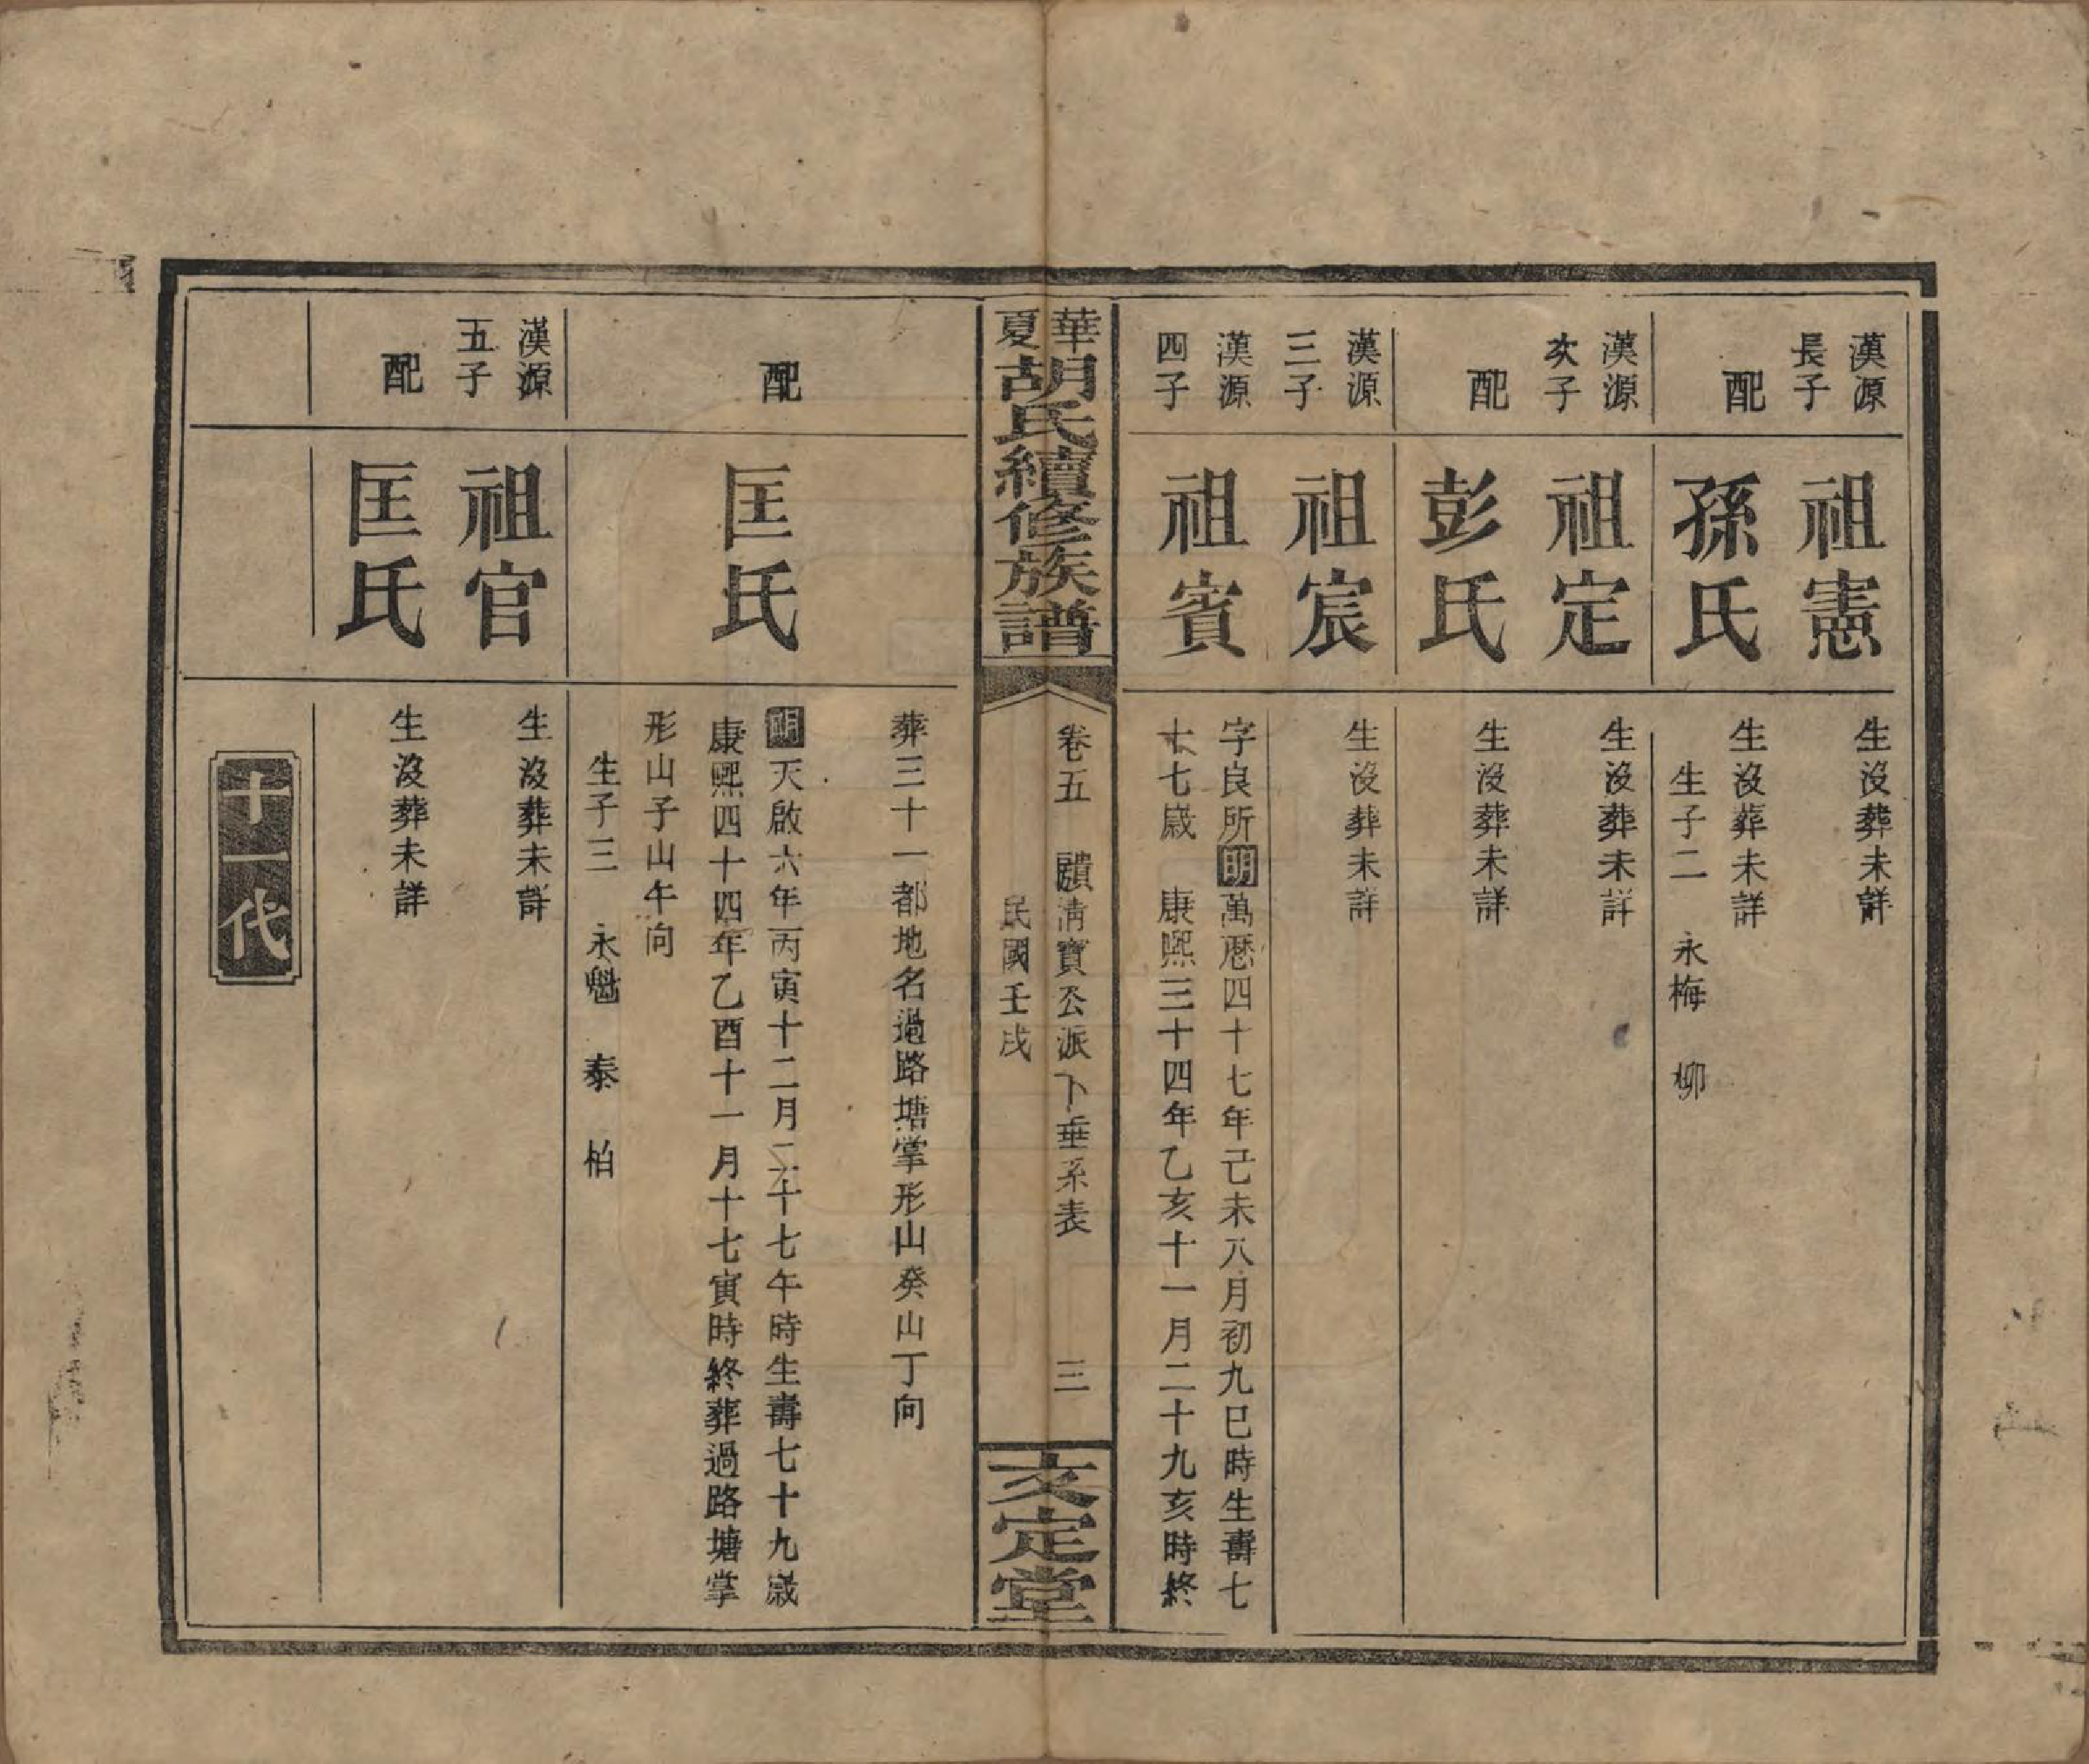 漢源
長子
祖憲
生没葬未詳
配
孫氏
生没葬未詳
生子二　永梅　柳
漢源
次子
祖定
生没葬未詳
配
彭氏
生没葬未詳
漢源
三子
祖宸
生没葬未詳
漢源
四子
祖賓
字良所明萬厯四十七年己未八月初九巳時生壽七
十七歲　康熙三十四年乙亥十一月二十九亥時終
華夏胡氏續修族譜
卷五　清寶公派下垂系表　三
民國壬戌
文定堂
葬三十一都地名過路塘掌形山癸山丁向
配
匡氏
明天啟六年丙寅十二月二十七午時生壽七十九歲
康熙四十四年乙酉十一月十七寅時終葬過路塘掌
形山子山午向
生子三　永魁　泰　柏
漢源
五子
祖官
生没葬未詳
配
匡氏
生没葬未詳
十一代